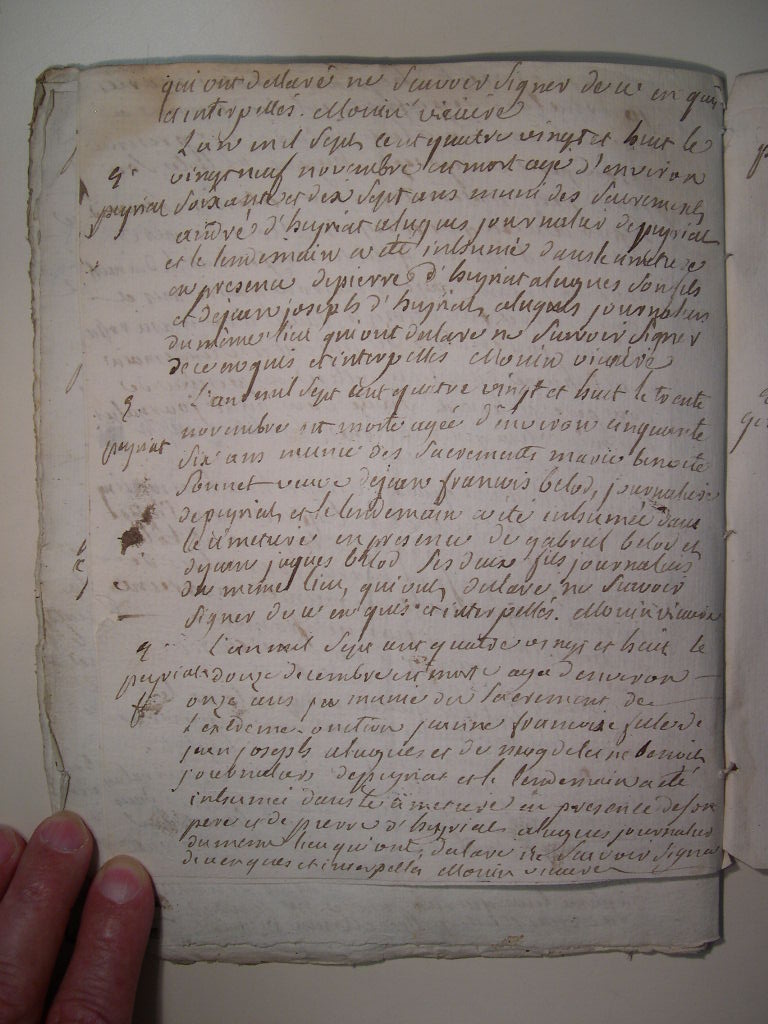 qui ont dellaré ne Scavoir Signer de ce en quis
et interpellés. Monin vicaire
L'an mil Sept cent quatre vingt et huit le
vingt neuf novembre est mort agé d'environ
peyriat Soixante et dix Sept ans muni des Sacrements
andré d'heyriat aluques journalier de peyriat
et le lendemain a été inhumé dans le cimetiere
en presence de pierre d'heyriat aluques Son fils
et de jean joseph d'heyriat aluques journaliers
du même lieu qui ont dellaré ne Scavoir Signer
de ce enquis et interpelles Monin vicaire
L'an mil Sept cent quatre vingt et huit le trente
novembre est morte agée d'environ cinquante
peyriat Six ans munie des Sacrements marie benoite
Sonnet veuve de jean francois belod, journaliere
de peyriat, et le lendemain a été inhumée dans
le cimetiere en presence de gabriel belod et
de jean jaques belod Ses deux fils journaliers
du même lieu, qui ont dellaré ne Scavoir
Signer de ce en quis et interpellés. Monin vicaire
L'an mil Sept cent quatre vingt et huit le
peyriat douze decembre est morte agée d'environ
onze ans munie du Sacrement de
L'extreme onction jeanne francoise fille de
jean joseph aluques et de magdelene benoit
journaliers de peyriat et le lendemain a été
inhumée dans le cimetiere en presence de Son
pere et de pierre d'heyriat aluques journalier
du meme lieu qui ont dellaré ne Scavoir Signer
de ce enques et interpelles Monin vicaire